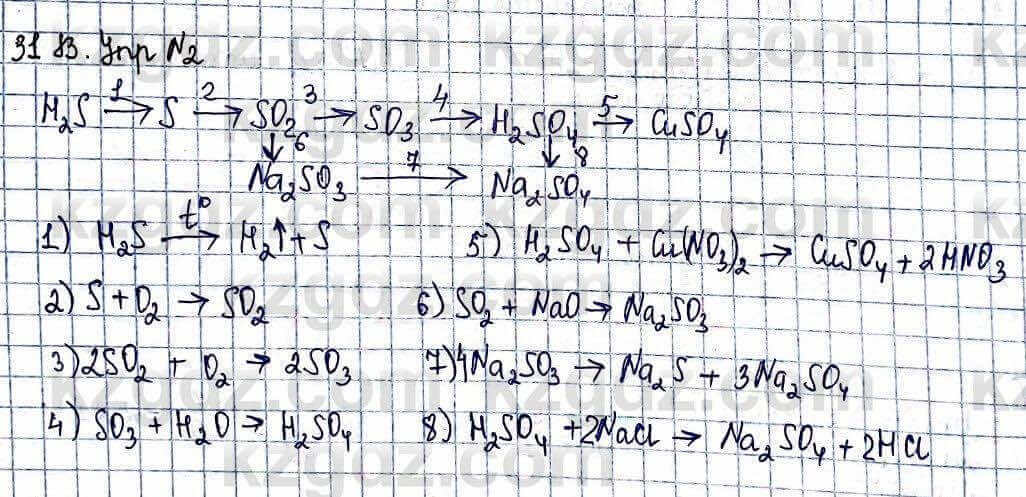 31 В. Упр N2
H₂S —1→ S —2→ SO₂ —3→ SO₃ —4→ H₂SO₄ —5→ CuSO₄
↓6 ↓8
Na₂SO₃ —7→ Na₂SO₄
1) H₂S —t°→ H₂↑ + S
5) H₂SO₄ + Cu(NO₃)₂ → CuSO₄ + 2HNO₃
2) S + O₂ → SO₂
6) SO₂ + NaO → Na₂SO₃
3) 2SO₂ + O₂ → 2SO₃
7) 4Na₂SO₃ → Na₂S + 3Na₂SO₄
4) SO₃ + H₂O → H₂SO₄
8) H₂SO₄ + 2NaCl → Na₂SO₄ + 2HCl
kzgdz.com